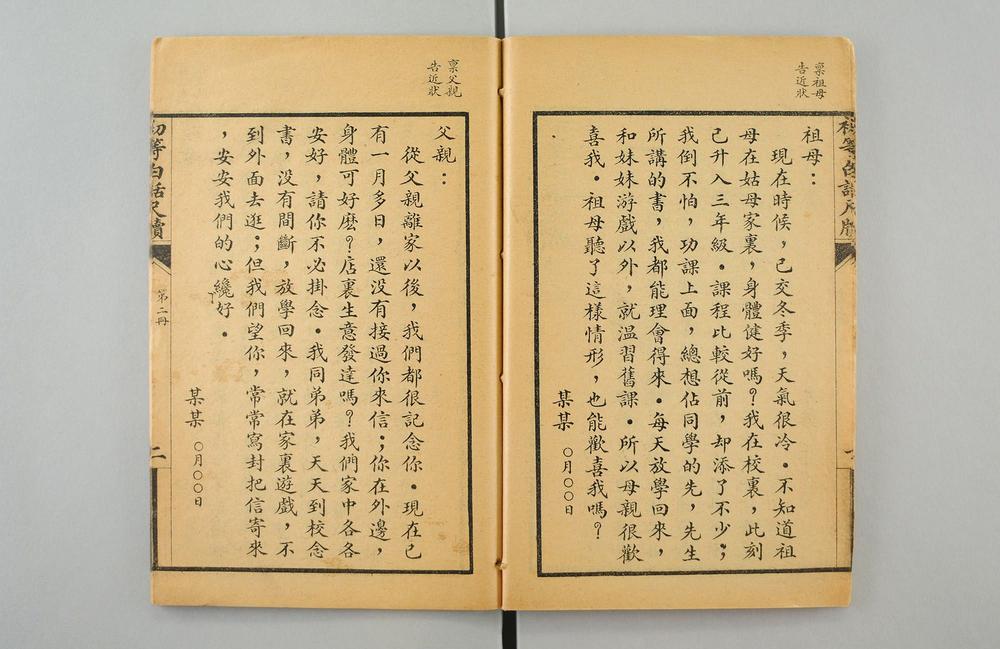 稟祖母
告近狀
初等白話尺牘
祖母：
現在時候，已交冬季，天氣很冷．不知道祖
母在姑母家裏，身體健好嗎？我在校裏，此刻
已升入三年級．課程比較從前，却添了不少；
我倒不怕，功課上面，總想佔同學的先，先生
所講的書，我都能理會得來．每天放學回來，
和妹妹游戲以外，就温習舊課．所以母親很歡
喜我．祖母聽了這樣情形，也能歡喜我嗎？
某某　〇月〇〇日
稟父親
告近狀
父親：
從父親離家以後，我們都很記念你．現在已
有一月多日，還没有接過你來信；你在外邊，
身體可好麽？店裏生意發達嗎？我們家中各各
安好，請你不必掛念．我同弟弟，天天到校念
書，没有間斷，放學回來，就在家裏遊戲，不
到外面去逛；但我們望你，常常寫封把信寄來
，安安我們的心纔好．
某某　〇月〇〇日
初等白話尺牘
第二冊
二